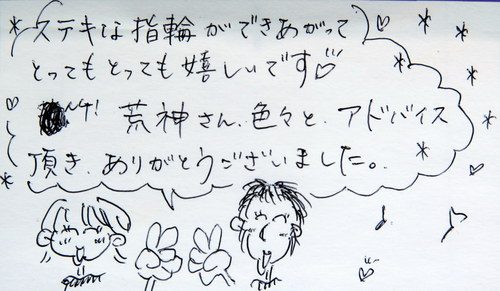 ステキな指輪ができあがって
とってもとっても嬉しいです
荒神さん、色々と、アドバイス
頂き、ありがとうございました。